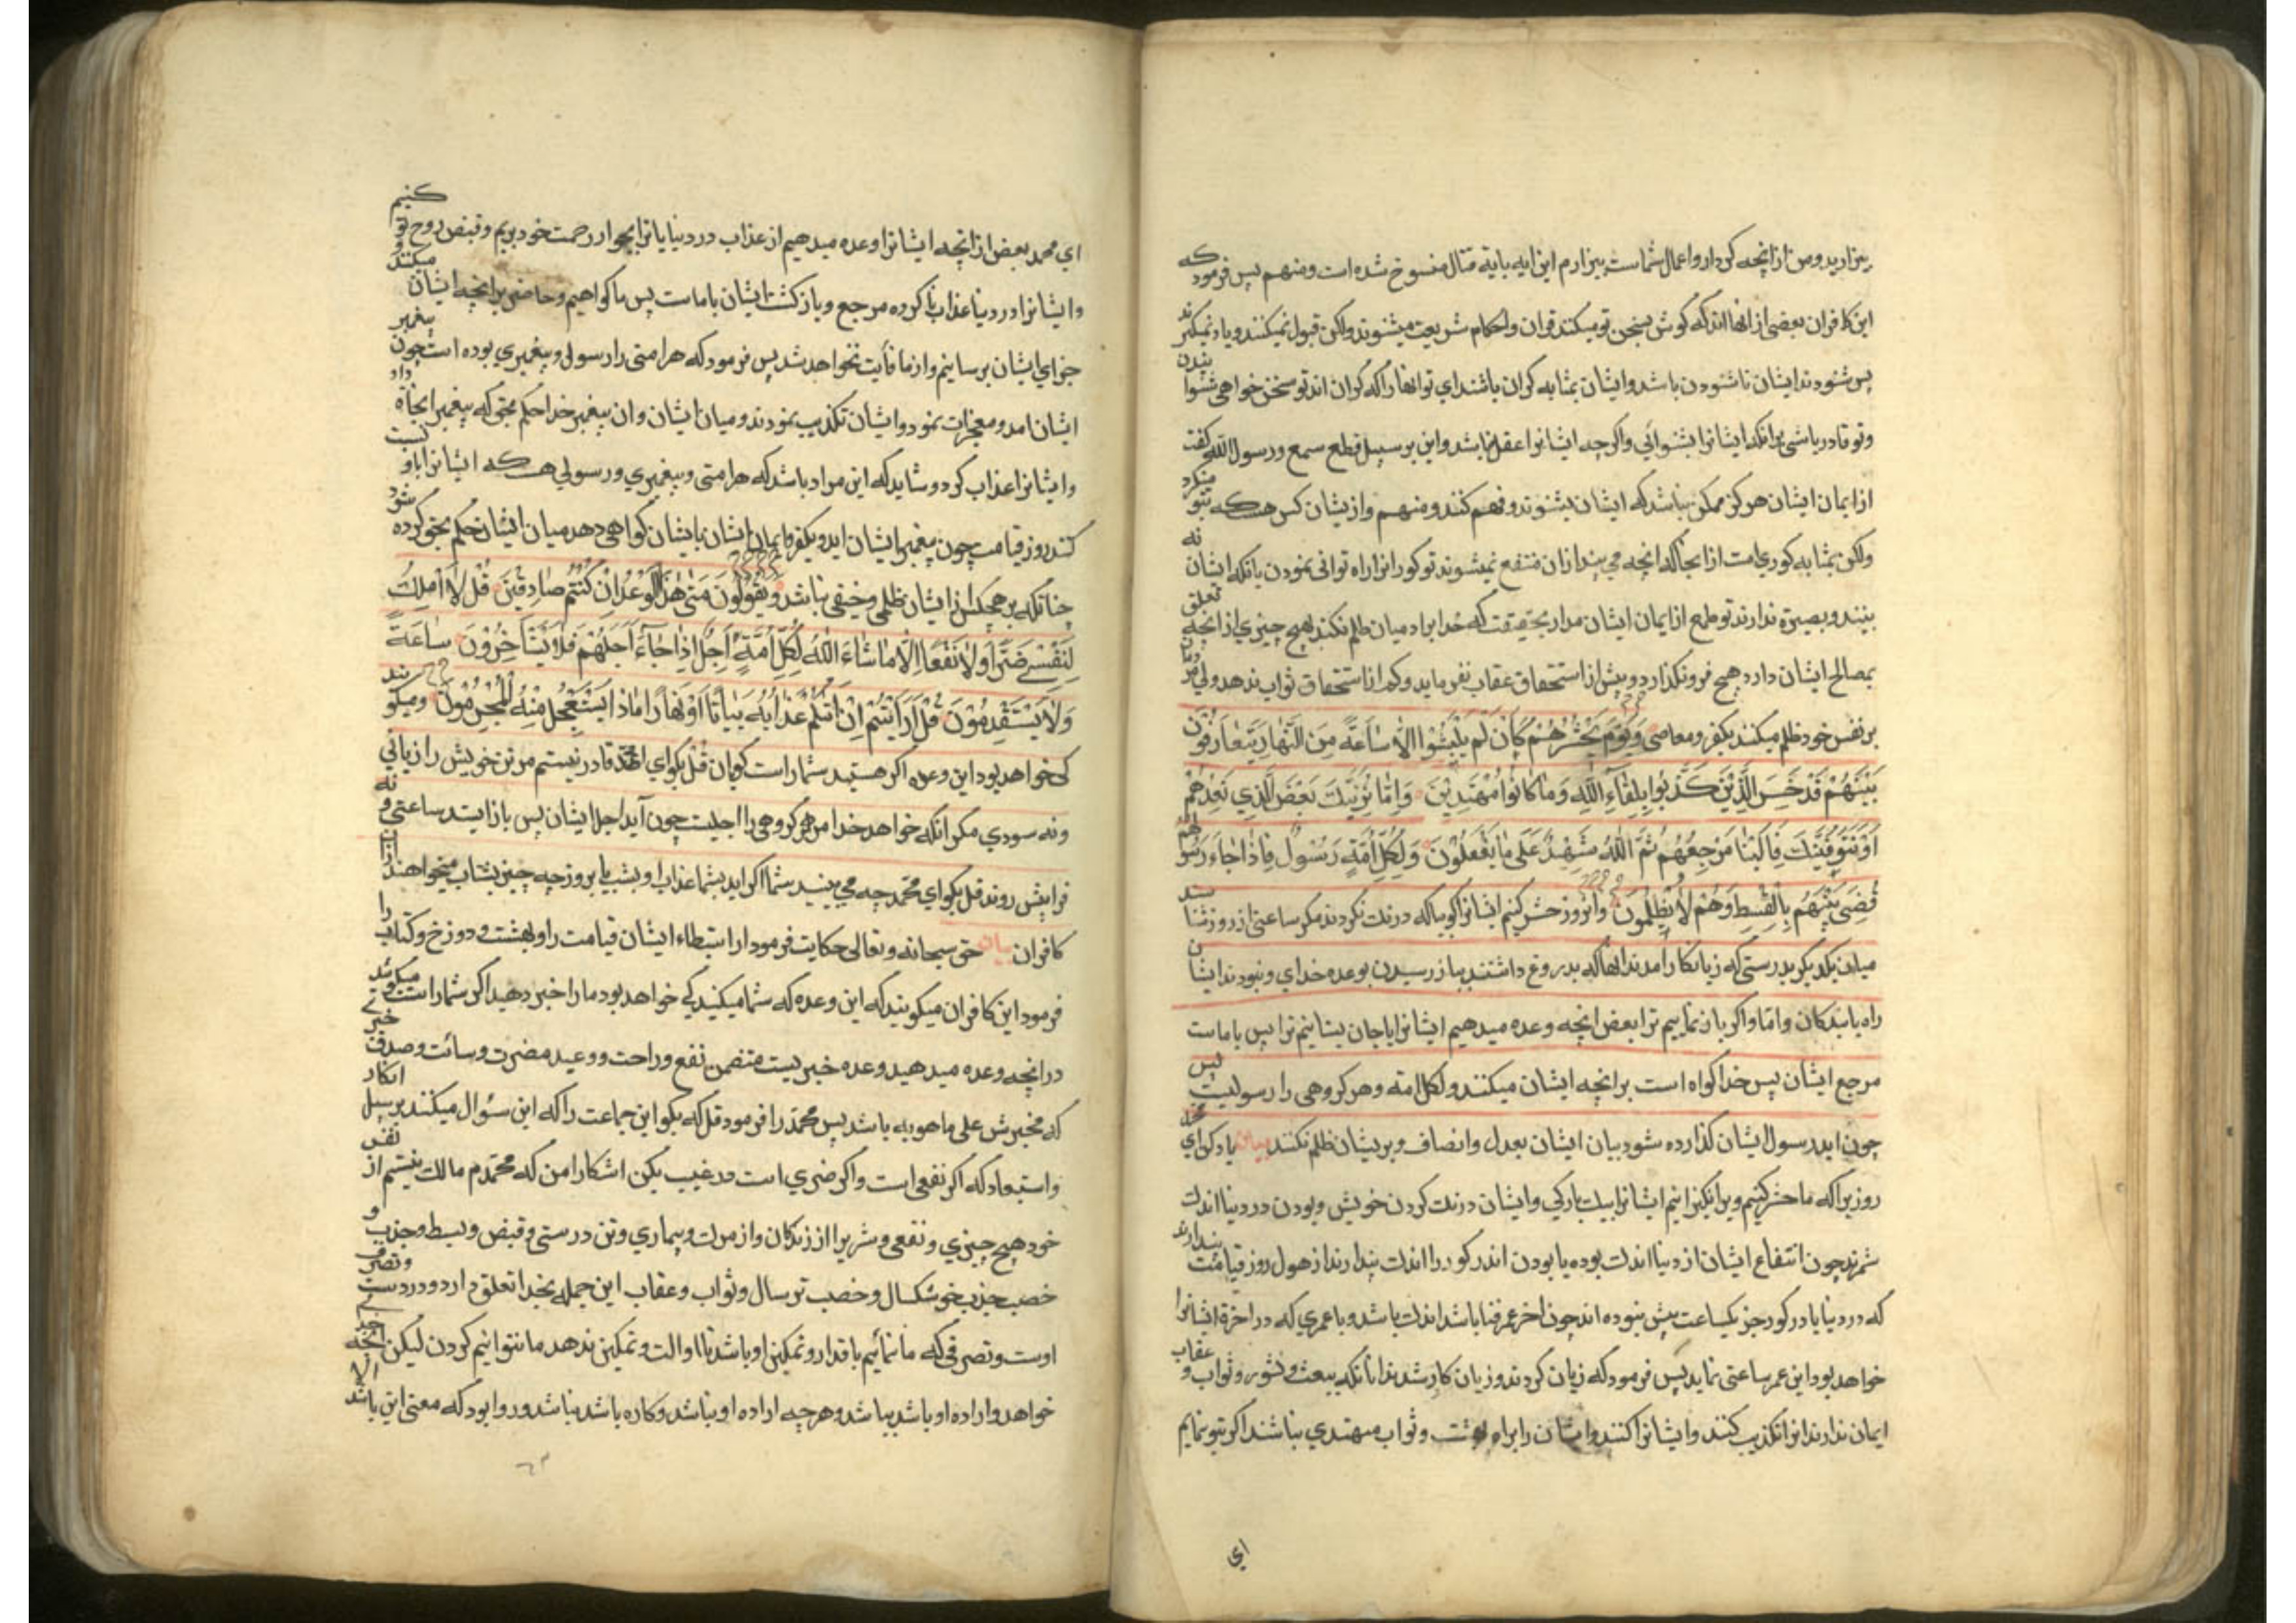 بیزارید و من از آنچه کردار و اعمال شماست بیزارم این ایه بایة قتال منسوخ شده است و منهم پس فرمود که
این کافران بعضی از انها اند که کوش بسخن تو میکنند قران و احکام شریعت میشنوند ولکن قبول نمیکنند و یاد نمیکیرند
پس شنودن ایشان ناشنودن باشد و ایشان بمثابه کران باشند ای تو انها را که کران اند تو سخن خواهی شنوانیدن
و تو قادر باشی برانکه ایشانرا بشنوانی و اکرچه ایشانرا عقل نباشد و این بر سبیل قطع سمع و رسول الله کفت
از ایمان ایشان هرکز ممکن نباشد که ایشان بشنوند و فهم کنند و منهم و از یشان کس هست که بتو مینکرد
ولکن بمثابه کوری است از انجا که انچه می بیند ازان منتفع نمیشوند تو کور انرا راه توانی نمودن با انکه ایشان نه
بینند و بصیرة ندارند تو طمع از ایمان ایشان مدار بحقیقت که خدا بر ادمیان ظلم نکند بهیچ چیزی از انچه تعلق
بمصالح ایشان دارد هیچ فرو نکذارد و بیش از استحقاق عقاب نفرماید و کم از استحقاق ثواب ندهد ولی مردمان
بر نفس خود ظلم میکنند بکفر و معاصی وَیَوْمَ یَحْشُرُهُمْ کَاَنْ لَمْ یَلْبَثُوا اِلاّٰ سٰاعَةً مِنَ النَّهٰارِ یَتَعٰارَفُوْنَ
بَیْنَهُمْ قَدْ خَسِرَ الَّذِیْنَ کَذَّبُوا بِلِقٰاءِ اللّٰهِ وَمٰا کٰانُوا مُهْتَدِیْنَ وَاِمّٰا نُرِیَنَّكَ بَعْضَ الَّذِی نَعِدُهُمْ
اَوْ نَتَوَفَّیَنَّكَ فَاِلَیْنٰا مَرْجِعُهُمْ ثُمَّ اللّٰهُ شَهِیْدٌ عَلٰی مٰا یَفْعَلُوْنَ وَلِکُلِّ اُمَّةٍ رَسُوْلٌ فَاِذٰا جٰاءَ رَسُوْلُهُمْ
قُضِیَ بَیْنَهُمْ بِالْقِسْطِ وَهُمْ لاٰ یُظْلَمُوْنَ وانروز حشر کنیم ایشانرا کویا که درنك نکردند مکر ساعتی از روز شناسند
میان یکدیکر بدرستی که زیانکار آمدند انها که بدروغ داشتند باز رسیدن بوعده خدای و نبودند ایشان
راه یابندکان و امّا و اکر باز نماییم ترا بعض انچه وعده میدهیم ایشانرا یا جان بستانیم ترا پس با ماست
مرجع ایشان پس خدا کواه است بر انچه ایشان میکنند و لکل امة و هر کروهی را رسولیست پس
چون اید رسول ایشان کذارده شود میان ایشان بعدل و انصاف و بریشان ظلم نکنند بیان یاد کن ای محمد
روزیرا که ما حشر کنیم و بر انکیزانیم ایشانرا بیك بارکی و ایشان درنك کردن خویش و بودن در دنیا اندك
شمرند چون انتفاع ایشان از دنیا اندك بوده یا بودن اندر کور را اندك پندارند از هول روز قیامت پندارند
که در دنیا یا در کور جز یکساعت بیش نبوده اند چون اخر عمر فنا باشد اندك باشد و با عمری که در اخرة ایشانرا
خواهد بود این عمر ساعتی نماید پس فرمود که زیان کردند و زیان کار شدند انانکه ببعث و نشور و ثواب و عقاب
ایمان ندارند انرا تکذیب کنند و ایشانرا کنند و ایشان را براه بهشت و ثواب مهتدی نباشند اکر بتو نمایم
ای
ای محمد بعض از انچه ایشانرا وعده میدهیم از عذاب در دنیا یا ترا بجوار رحمت خود بریم و قبض روح تو کنیم
و ایشانرا در دنیا عذاب نا کرده مرجع و باز کشت ایشان با ماست پس ما کواهیم و حاضر بر انچه ایشان میکنند و
جزای ایشان برسانیم و از ما فایت نخواهد شد پس فرمود که هر امتی را رسولی و پیغمبری بوده است چون پیغمبر
ایشان امد و معجزات نمود و ایشان تکذیب نمودند و میان ایشان و ان پیغمبر خدا حکم بحق که پیغمبر انجاة داد
و ایشانرا عذاب کرد و شاید که این مراد باشد که هر امتی و پیغمبری و رسولی هست که ایشانرا با او نسبت
کنند روز قیامت چون پیغمبر ایشان اید و بکفر و ایمان ایشان بایشان کواهی دهد میان ایشان حکم بحق کرده شود
چنانکه بر هیچکس از ایشان ظلمی و حیفی نباشد وَیَقُوْلُوْنَ مَتٰی هٰذَا الْوَعْدُ اِنْ کُنْتُمْ صٰادِقِیْنَ قُلْ لاٰ اَمْلِكُ
لِنَفْسِی ضَرًّا وَلاٰ نَفْعًا اِلاّٰ مٰا شٰاءَ اللّٰهُ لِکُلِّ اُمَّةٍ اَجَلٌ اِذٰا جٰاءَ اَجَلُهُمْ فَلاٰ یَسْتَأْخِرُوْنَ سٰاعَةً
وَلاٰ یَسْتَقْدِمُوْنَ قُلْ اَرَاَیْتُمْ اِنْ اَتٰیکُمْ عَذٰابُهُ بَیٰاتًا اَوْ نَهٰارًا مٰاذٰا یَسْتَعْجِلُ مِنْهُ الْمُجْرِمُوْنَ و میکویند
کی خواهد بود این وعده اکر هستید شما راست کویان قل بکو ای محمد قادر نیستم مر تن خویش را زیانی
و نه سودی مکر انکه خواهد خدا مر هر کروهی را اجلیست چون آید اجل ایشان پس باز نایستد ساعتی و نه
فرا پیش روند قل بکو ای محمّد چه می بینید شما اکر اید بشما عذاب او بشب یا بروز چه چیز بشتاب میخواهند ازان
کافران بیان حق سبحانه و تعالی حکایت فرمود از استبطاء ایشان قیامت را و بهشت و دوزخ و کتاب را
فرمود این کافران میکویند که این وعده که شما میکنید کی خواهد بود ما را خبر دهید اکر شما راست میکویید
در انچه وعده میدهید وعده خبریست متضمن نفع و راحت و وعید مضرت و سائت و صدق خبر
که مخبرش علی ما هو به باشد پس محمّد را فرمود قل که بکو این جماعت را که این سئوال میکنند بر سبیل انکار
و استبعاد که اکر نفعی است و اکر ضرری است در غیب یکن اشکارا من که محمّدم مالك نیستم از نفس
خود هیچ چیزی و نفعی و شریرا از زندکان و از مرك و بیماری و تن درستی و قبض و بسط و جذب و
خصب جذب خوشکسال و خصب ترسال و ثواب و عقاب این جمله بخدا تعلق دارد و در دست و تصرف
اوست و تصرفی که ما نمائیم باقدار و تمکین او باشد تا او الت و تمکین ندهد ما نتوانیم کردن لیکن انچه
خواهد و اراده او باشد بباشد و هر چه اراده او نباشد و کاره باشد نباشد و روا بود که معنی این باشد الا